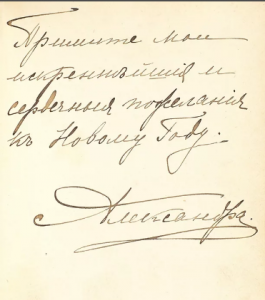 Примите мои
искреннѣйшія и
сердечныя пожеланія
къ Новому Году.
Александра.